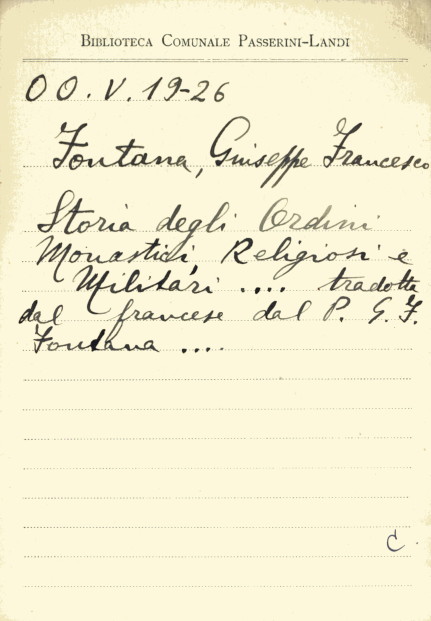 BIBLIOTECA COMUNALE PASSERINI-LANDI
OO.V.19-26
Fontana, Giuseppe Francesco
Storia degli Ordini
Monastici Religiosi e
Militari .... tradotta
dal francese dal P. G. F.
Fontana ....
C